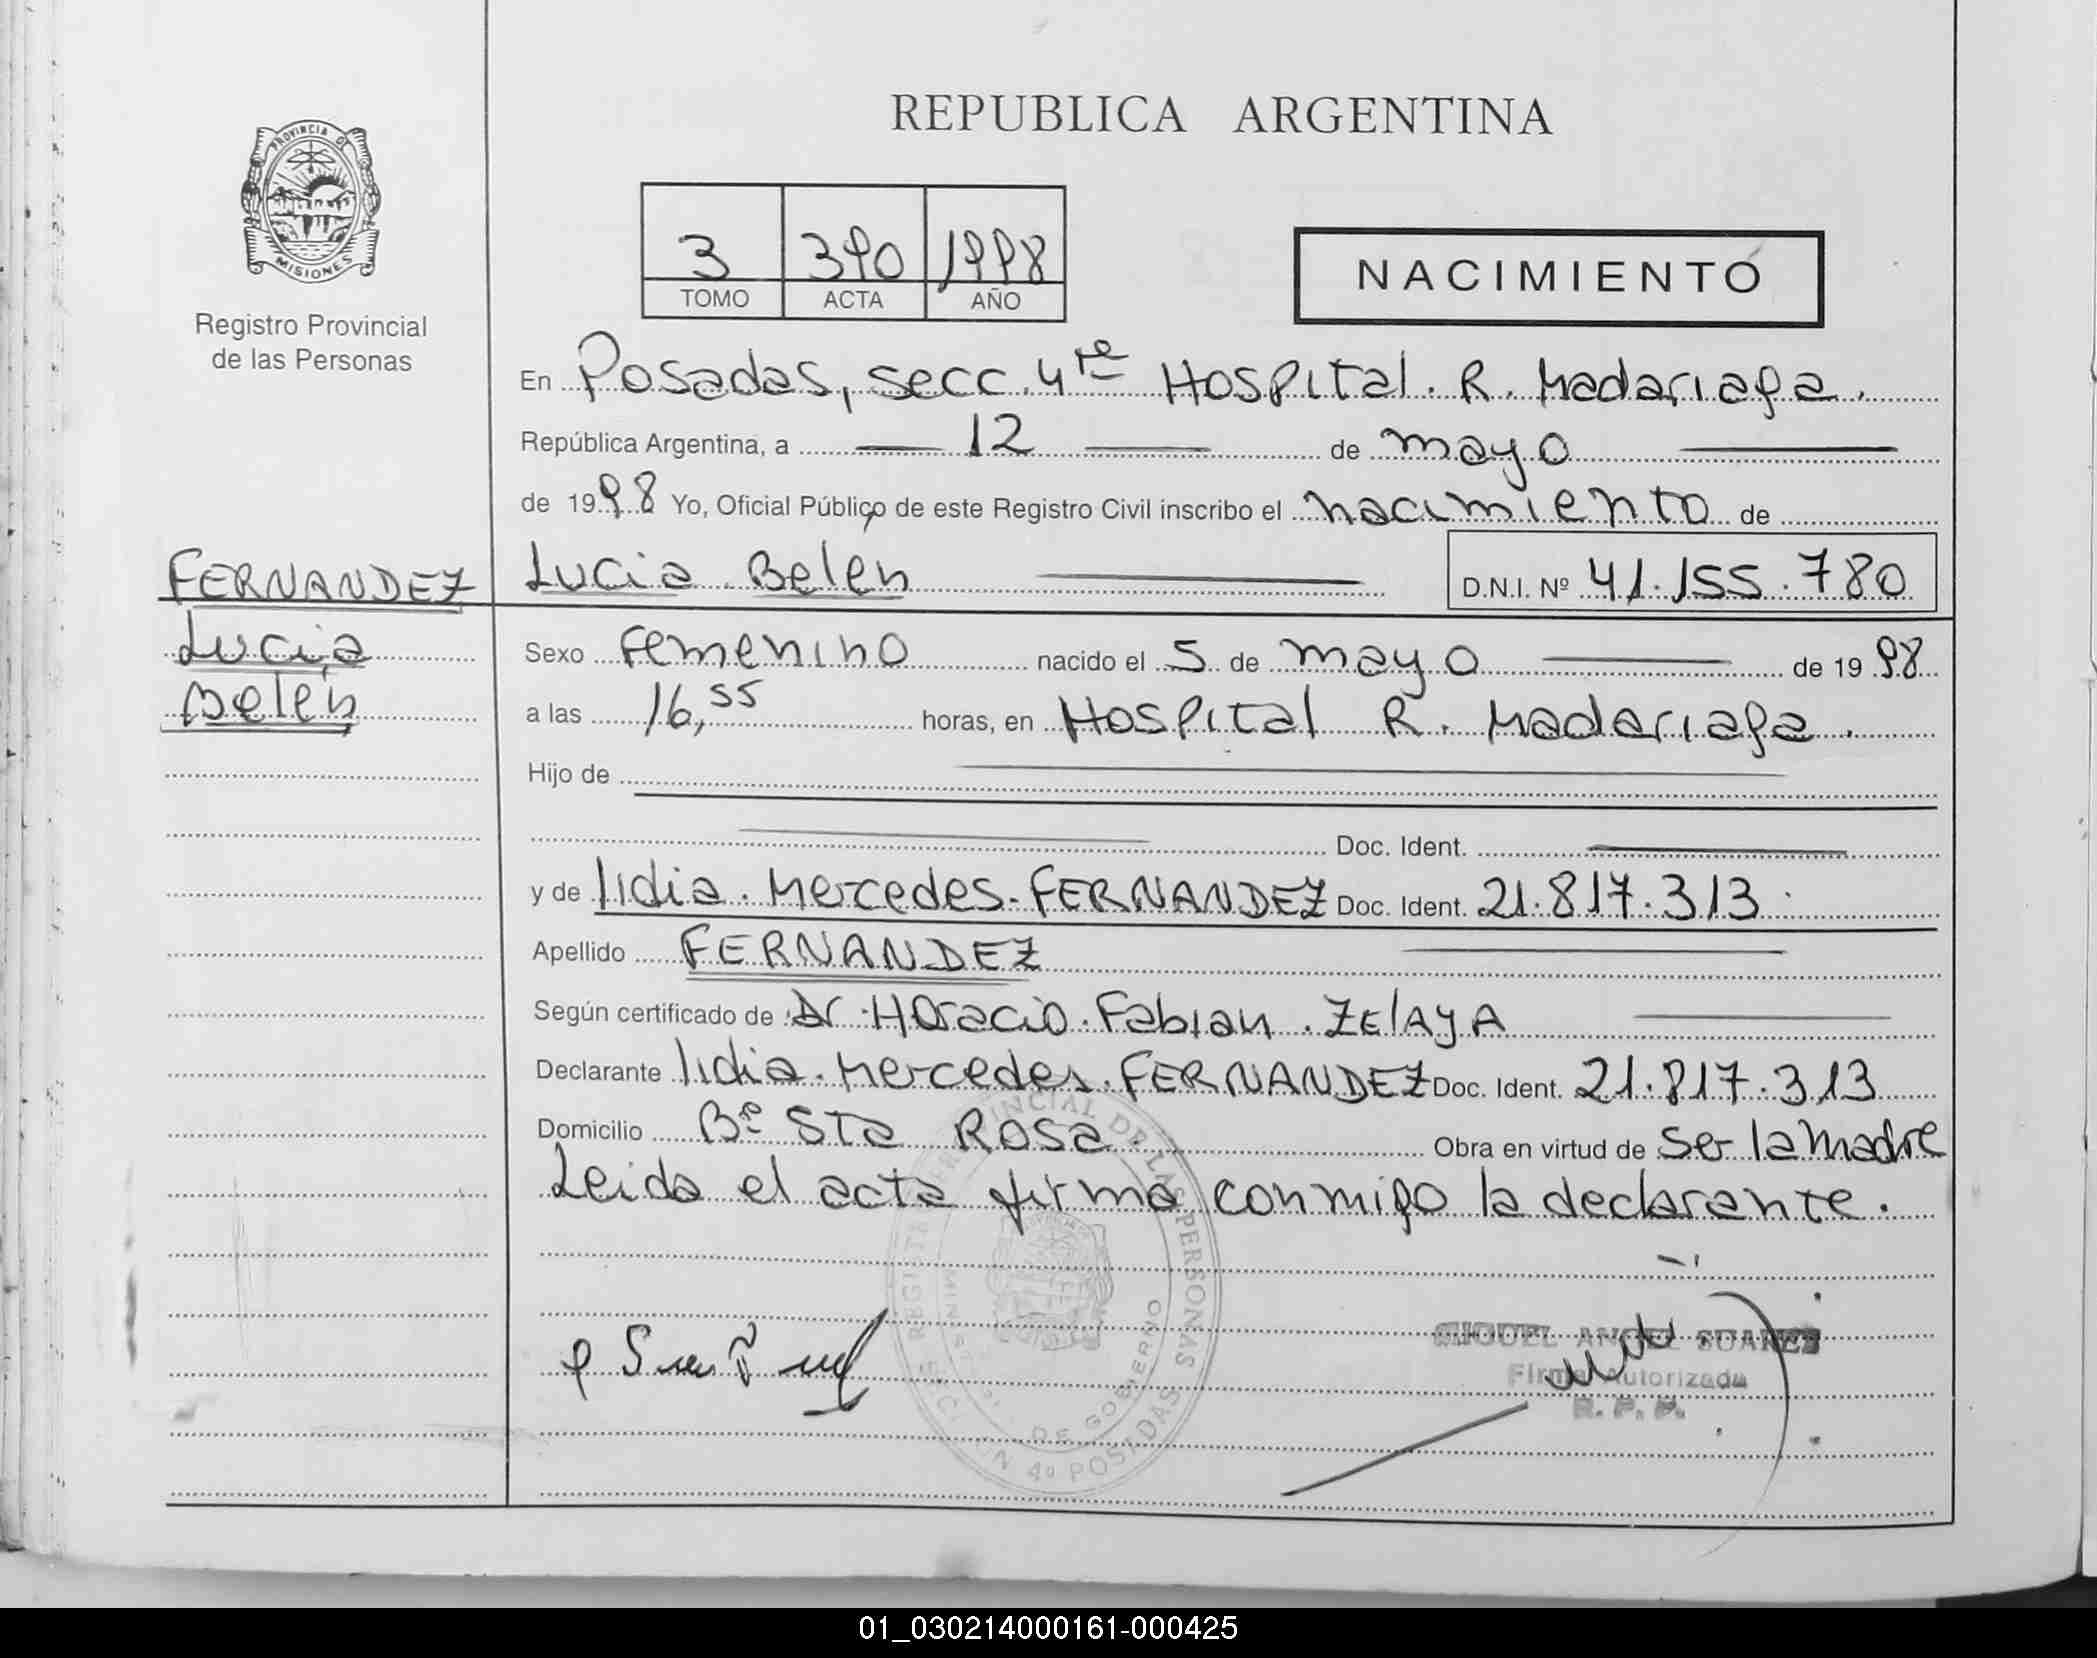 PROVINCIA DE
MISIONES
Registro Provincial
de las Personas
REPUBLICA ARGENTINA
3 390 1998
TOMO ACTA AÑO
NACIMIENTO
En Posadas, secc. 4ta Hospital. R. Madariaga.
República Argentina, a 12 de mayo
de 1998 Yo, Oficial Público de este Registro Civil inscribo el nacimiento de
FERNANDEZ Lucia Belen D.N.I. Nº 41.155.780
Lucia
Belen
Sexo Femenino nacido el 5 de mayo de 1998
a las 16,55 horas, en Hospital R. Madariaga.
Hijo de
Doc. Ident.
y de lidia. Mercedes. FERNANDEZ Doc. Ident. 21.817.313.
Apellido FERNANDEZ
Según certificado de Dr. Horacio. Fabian. ZElAyA
Declarante lidia. Mercedes. FERNANDEZ Doc. Ident. 21.817.313
Domicilio Bº Sta Rosa. Obra en virtud de Ser la Madre
Leida el acta firma conmigo la declarante.
MIGUEL ANGEL SUAREZ
Firma Autorizada
R. P. P.
01_030214000161-000425